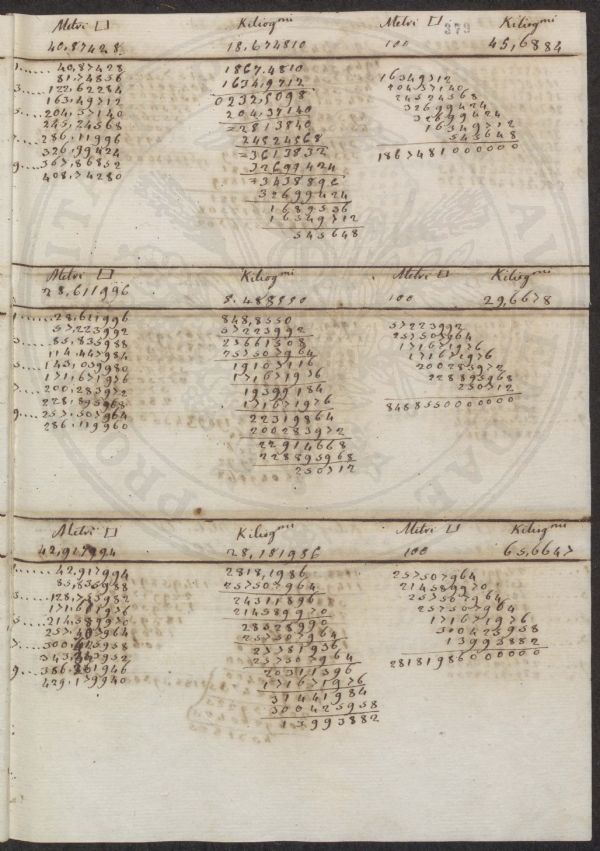 Metri □ Kiliogmi Metri □ 373 Kiliogmi
40,87428 18,674810 100 45,6884
1..... 40,87428
81,74856
3..... 122,62284
163,49712
5..... 204,37140
245,24568
7..... 286,11996
326,99424
9..... 367,86852
408,74280
1867,4810
1634,9712
0232,5098
204,37140
=2813840
24524568
=3613832
32699424
=3438896
32699424
1689536
16349712
545648
16349712
20437140
24524568
32699424
32699424
16349712
545648
1867481000000
Metri □ Kiliogmi Metri □ Kiliogmi
28,611996 8,488550 100 29,6678
1..... 28,611996
57,223992
3..... 85,835988
114,447984
5..... 143,059980
171,671976
7..... 200,283972
228,895968
9..... 257,507964
286,119960
848,8550
57223992
27661508
257507964
19107116
171671976
19399184
171671976
22319864
200283972
22914668
228895968
250712
57223992
257507964
171671976
171671976
200283972
228895968
250712
8488550000000
Metri □ Kiliogmi Metri □ Kiliogmi
42,917994 28,181986 100 65,6647
1..... 42,917994
85,835988
3..... 128,753982
171,671976
5..... 214,589970
257,507964
7..... 300,425958
343,343952
9..... 386,261946
429,179940
2818,1986
257507964
24311896
214589970
28528990
257507964
27781936
257507964
20311396
171671976
31441984
300425958
13993882
257507964
214589970
257507964
257507964
171671976
300425958
13993882
28181986000000